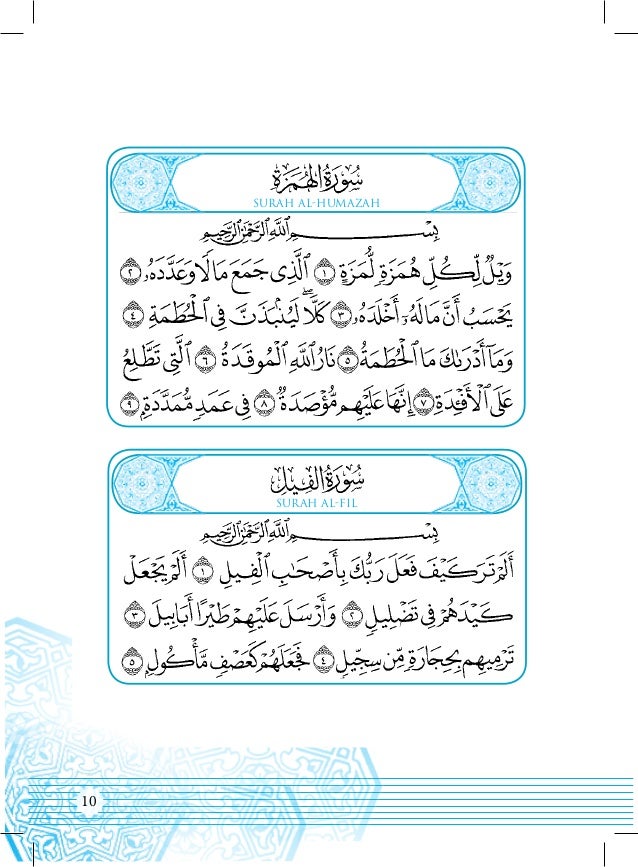 سُورَةُ الْهُمَزَةِ
SURAH AL-HUMAZAH
بِسْمِ اللَّهِ الرَّحْمَٰنِ الرَّحِيمِ
وَيْلٌ لِّكُلِّ هُمَزَةٍ لُّمَزَةٍ ١ ٱلَّذِى جَمَعَ مَالًا وَعَدَّدَهُۥ ٢
يَحْسَبُ أَنَّ مَالَهُۥٓ أَخْلَدَهُۥ ٣ كَلَّا ۖ لَيُنۢبَذَنَّ فِى ٱلْحُطَمَةِ ٤
وَمَآ أَدْرَىٰكَ مَا ٱلْحُطَمَةُ ٥ نَارُ ٱللَّهِ ٱلْمُوقَدَةُ ٦ ٱلَّتِى تَطَّلِعُ
عَلَى ٱلْأَفْـِٔدَةِ ٧ إِنَّهَا عَلَيْهِم مُّؤْصَدَةٌ ٨ فِى عَمَدٍ مُّمَدَّدَةٍۭ ٩
سُورَةُ الْفِيلِ
SURAH AL-FIL
بِسْمِ اللَّهِ الرَّحْمَٰنِ الرَّحِيمِ
أَلَمْ تَرَ كَيْفَ فَعَلَ رَبُّكَ بِأَصْحَٰبِ ٱلْفِيلِ ١ أَلَمْ يَجْعَلْ
كَيْدَهُمْ فِى تَضْلِيلٍ ٢ وَأَرْسَلَ عَلَيْهِمْ طَيْرًا أَبَابِيلَ ٣
تَرْمِيهِم بِحِجَارَةٍ مِّن سِجِّيلٍ ٤ فَجَعَلَهُمْ كَعَصْفٍ مَّأْكُولٍۭ ٥
10